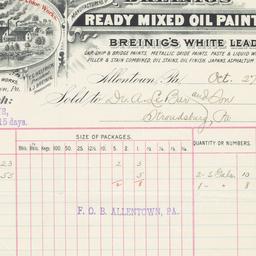 BREINIG'S
READY MIXED OIL PAINT
BREINIG'S WHITE LEAD
CAR, SHIP & BRIDGE PAINTS, METALLIC OXIDE PAINTS, PASTE & LIQUID W
FILLER & STAIN COMBINED, OIL STAINS, OIL FINISH, JAPANS, ASPHALTUM
Allentown, Pa Oct. 27
Sold to Dr. A. LeBar and Son
Stroudsburg, Pa
15 days.
SIZE OF PACKAGES.
QUANTITY OR NUMBERS.
Bbls. ½Bbls. Kegs 100. 50. 25. 12½. 10. 5. 2. 1. ½. ¼. ⅛.
23 2 3
55 5 2-5 Gals. 10
2 8 1- " 8
F. O. B. ALLENTOWN, PA.